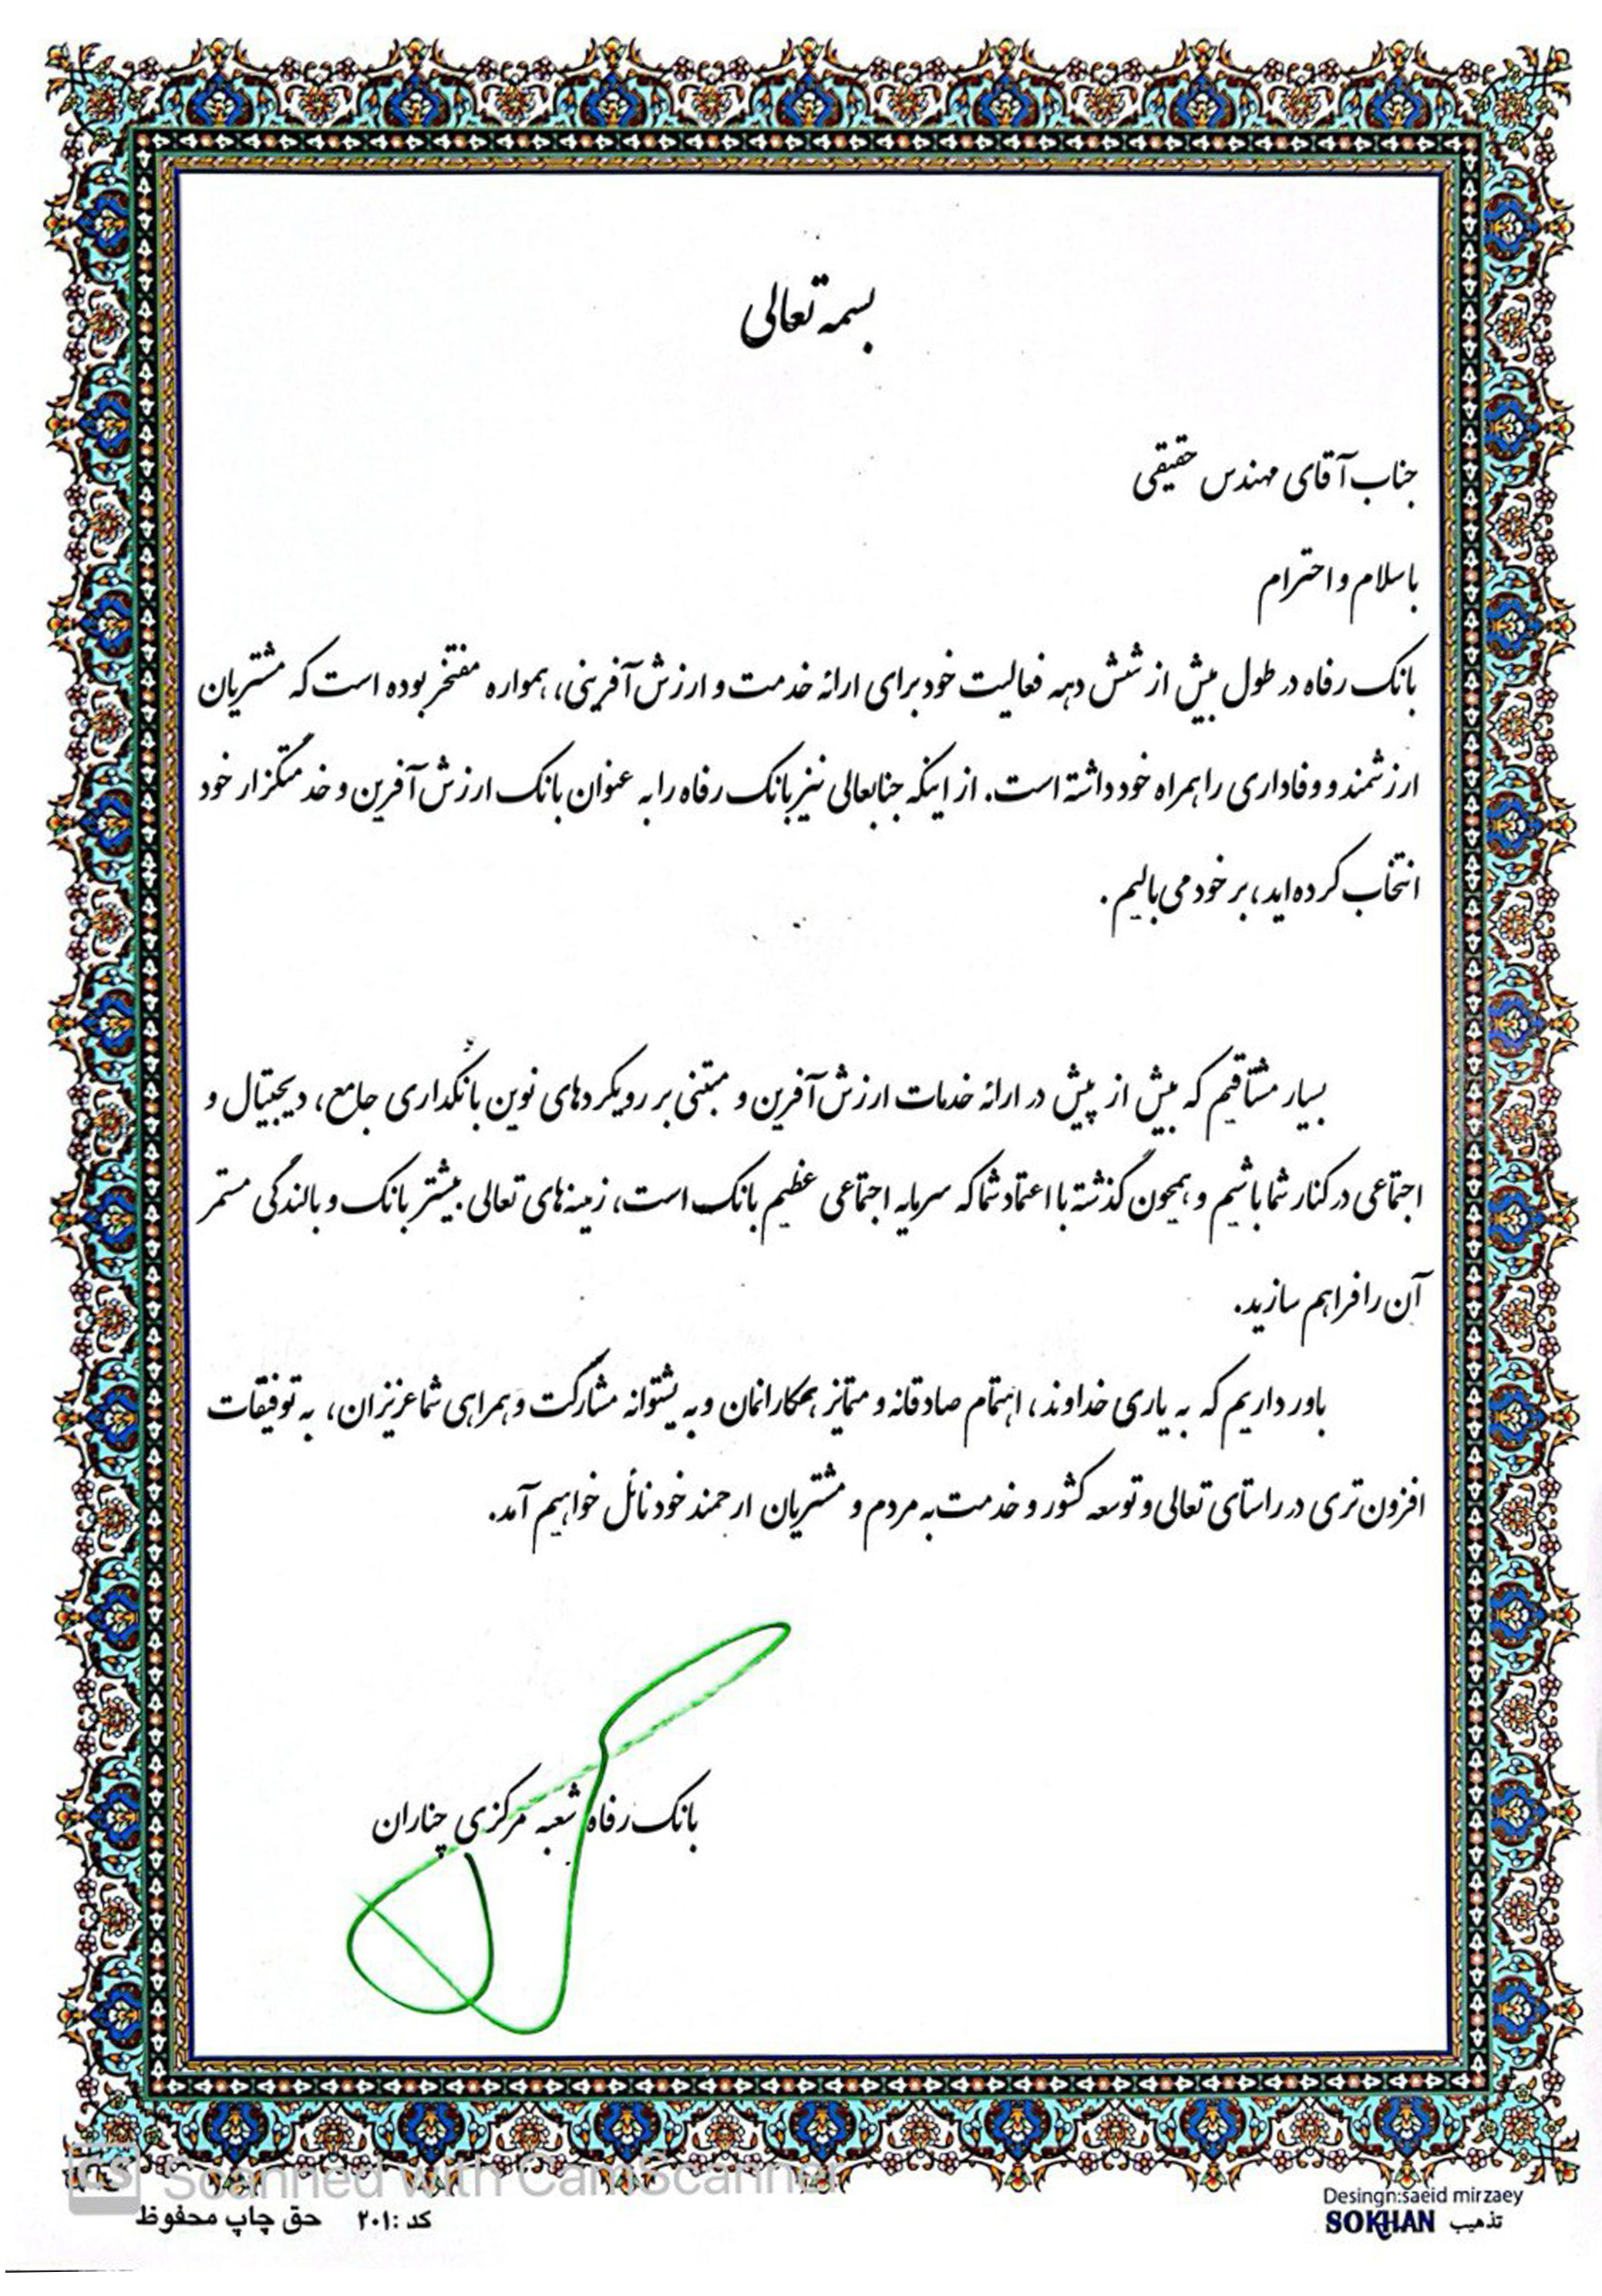 بسمه تعالی
جناب آقای مهندس حقیقی
با سلام و احترام
بانک رفاه در طول بیش از شش دهه فعالیت خود برای ارائه خدمت و ارزش آفرینی، همواره مفتخر بوده است که مشتریان
ارزشمند و وفاداری را همراه خود داشته است. از اینکه جنابعالی نیز بانک رفاه را به عنوان بانک ارزش آفرین و خدمتگزار خود
انتخاب کرده اید، بر خود می بالیم.
بسیار مشتاقیم که بیش از پیش در ارائه خدمات ارزش آفرین و مبتنی بر رویکردهای نوین بانکداری جامع، دیجیتال و
اجتماعی در کنار شما باشیم و همچون گذشته با اعتماد شما که سرمایه اجتماعی عظیم بانک است، زمینه های تعالی بیشتر بانک و بالندگی مستمر
آن را فراهم سازید.
باور داریم که به یاری خداوند، اهتمام صادقانه و متمایز همکارانمان و به پشتوانه مشارکت و همراهی شما عزیزان، به توفیقات
افزون تری در راستای تعالی و توسعه کشور و خدمت به مردم و مشتریان ارجمند خود نائل خواهیم آمد.
بانک رفاه شعبه مرکزی چناران
CS Scanned with CamScanner
Desingn:saeid mirzaey
تذهیب SOKHAN
کد :۲۰۱ حق چاپ محفوظ